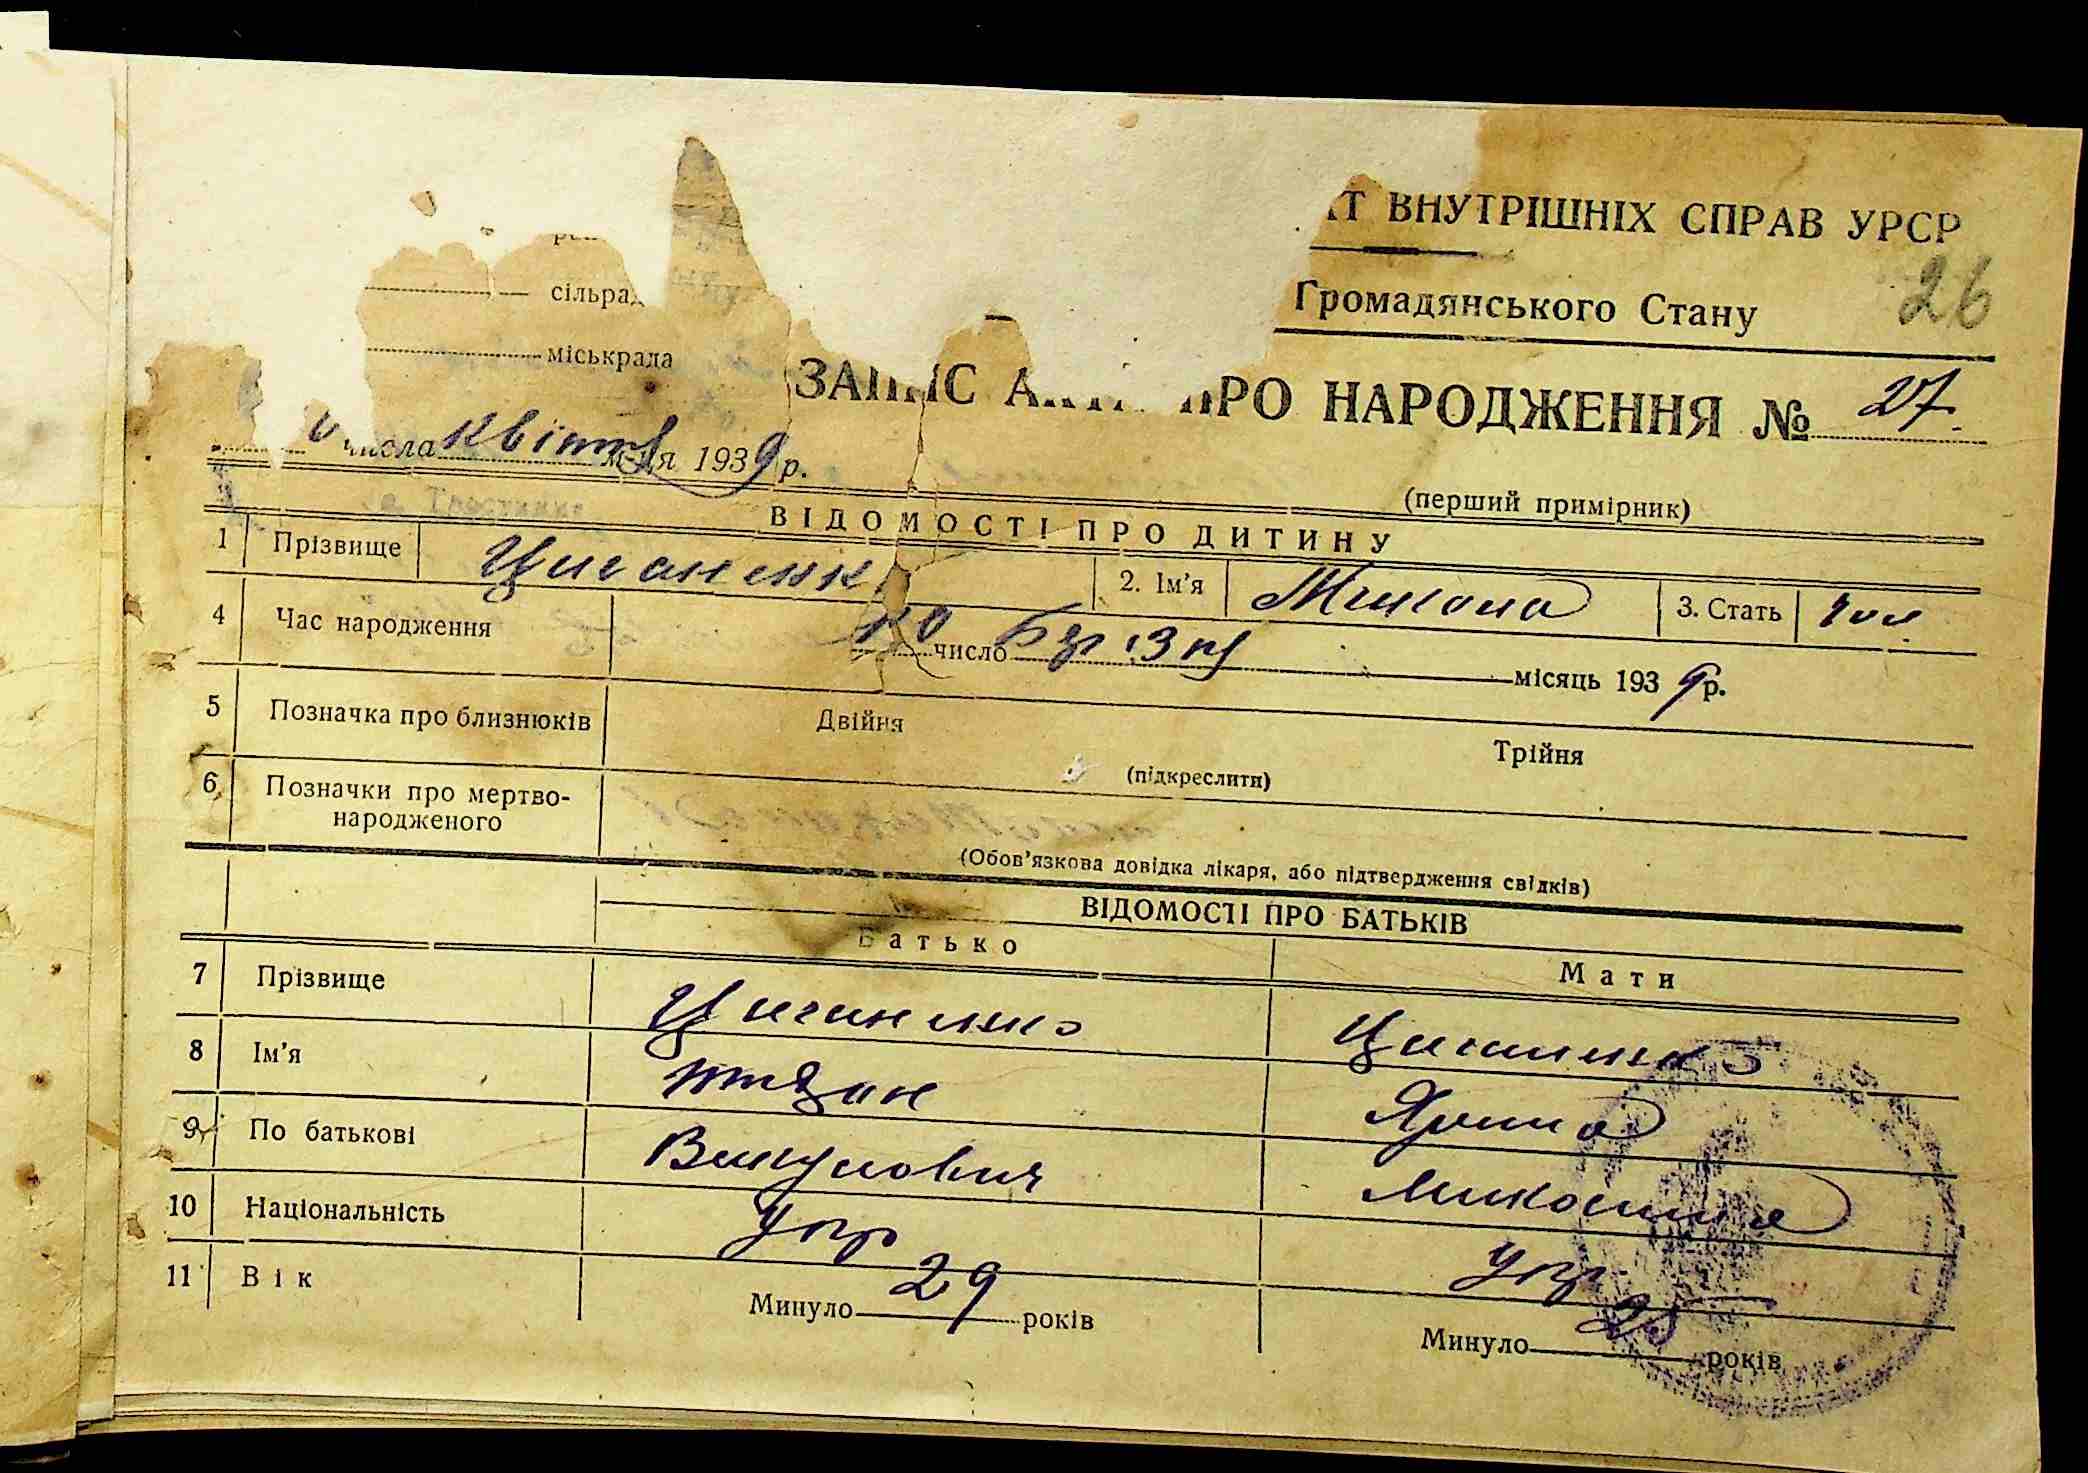 ВНУТРІШНІХ СПРАВ УРСР
26
сільрада
Громадянського Стану
міськрада
ЗАПИС АКТУ ПРО НАРОДЖЕННЯ № 27.
числа квітня м-ця 1939 р.
(перший примірник)
ВІДОМОСТІ ПРО ДИТИНУ
1 Прізвище Циганенко 2. Ім'я Микола 3. Стать чол
4 Час народження число Березня місяць 1939 р.
5 Позначка про близнюків Двійня Трійня
(підкреслити)
6 Позначки про мертво-
народженого
(Обов'язкова довідка лікаря, або підтвердження свідків)
ВІДОМОСТІ ПРО БАТЬКІВ
Батько Мати
7 Прізвище Циганенко Циганенко
8 Ім'я Ярина
9 По батькові
10 Національність Укр Укр
11 Вік Минуло 29 років Минуло 25 років